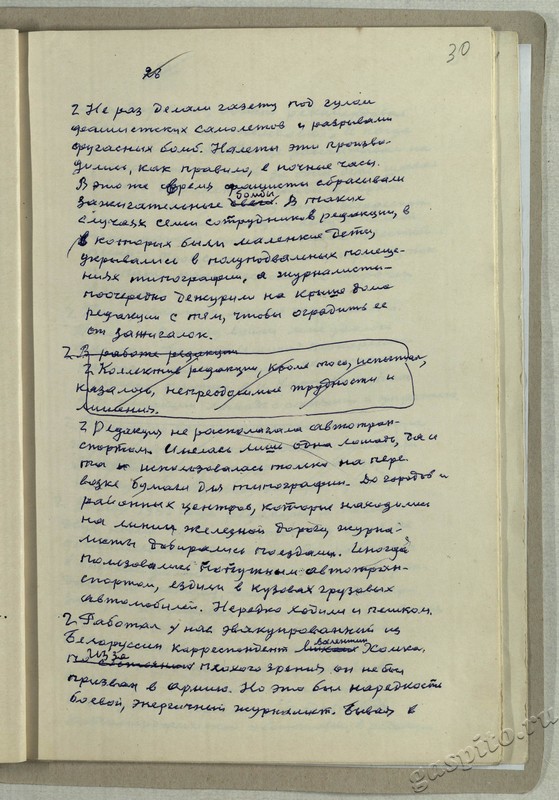 30
26
Не раз делали газету под гулом
фашистских самолетов и разрывами
фугасных бомб. Налеты эти произво-
дились, как правило, в ночные часы.
В это же время фашисты сбрасывали
зажигательные бомбы. В таких
случаях семьи сотрудников редакции, в
которых были маленькие дети,
укрывались в полуподвальных помеще-
ниях типографии, а журналисты
поочередно дежурили на крыше дома
редакции с тем, чтобы оградить ее
от зажигалок.
В работе редакции
Коллектив редакции, кроме того, испытал,
казалось, непреодолимые трудности и
лишения.
Редакция не располагала автотран-
спортом. Имелась лишь одна лошадь, да и
та использовалась только на пере-
возке бумаги для типографии. До городов и
районных центров, которые находились
на линии железной дороги, журна-
листы добирались поездами. Иногда
пользовались попутным автотран-
спортом, ездили в кузовах грузовых
автомобилей. Нередко ходили и пешком.
Работал у нас эвакуированный из
Белоруссии корреспондент Валентин Хомка.
Из-за плохого зрения он не был
призван в армию. Но это был на редкость
боевой, энергичный журналист. Бывая в
gaspito.ru